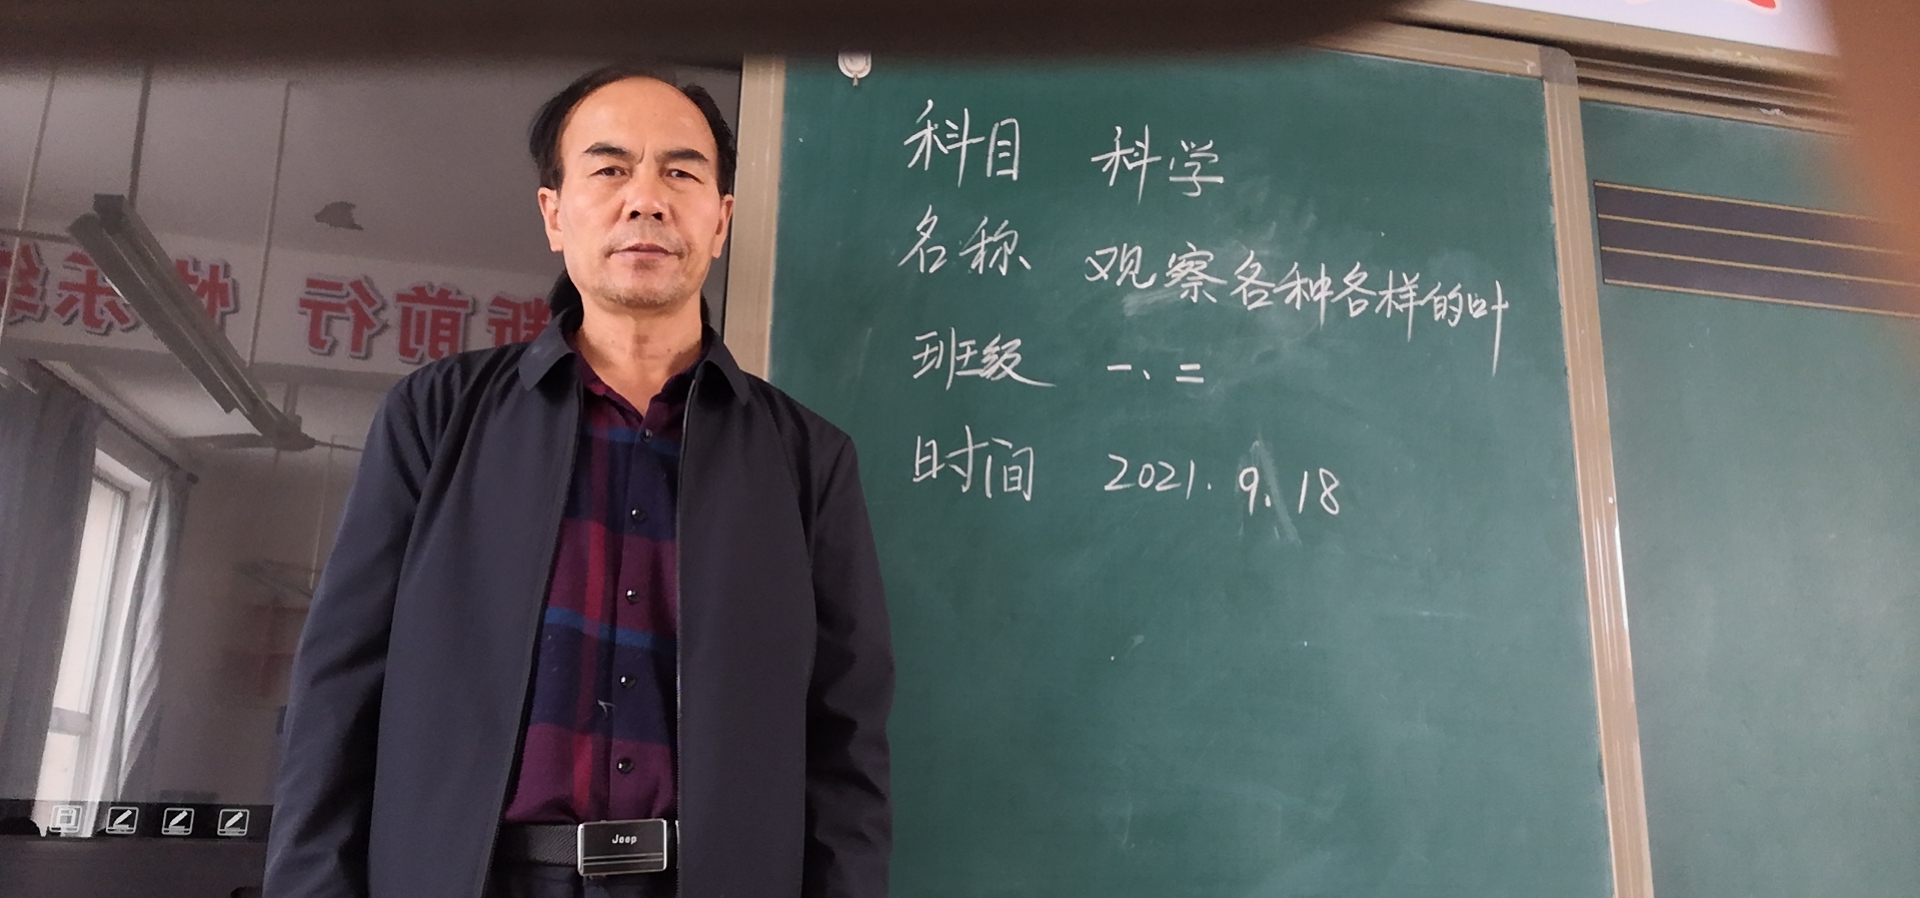 科目 科学
名称 观察各种各样的叶
班级 一、二
时间 2021.9.18
前行
乐
Jeep